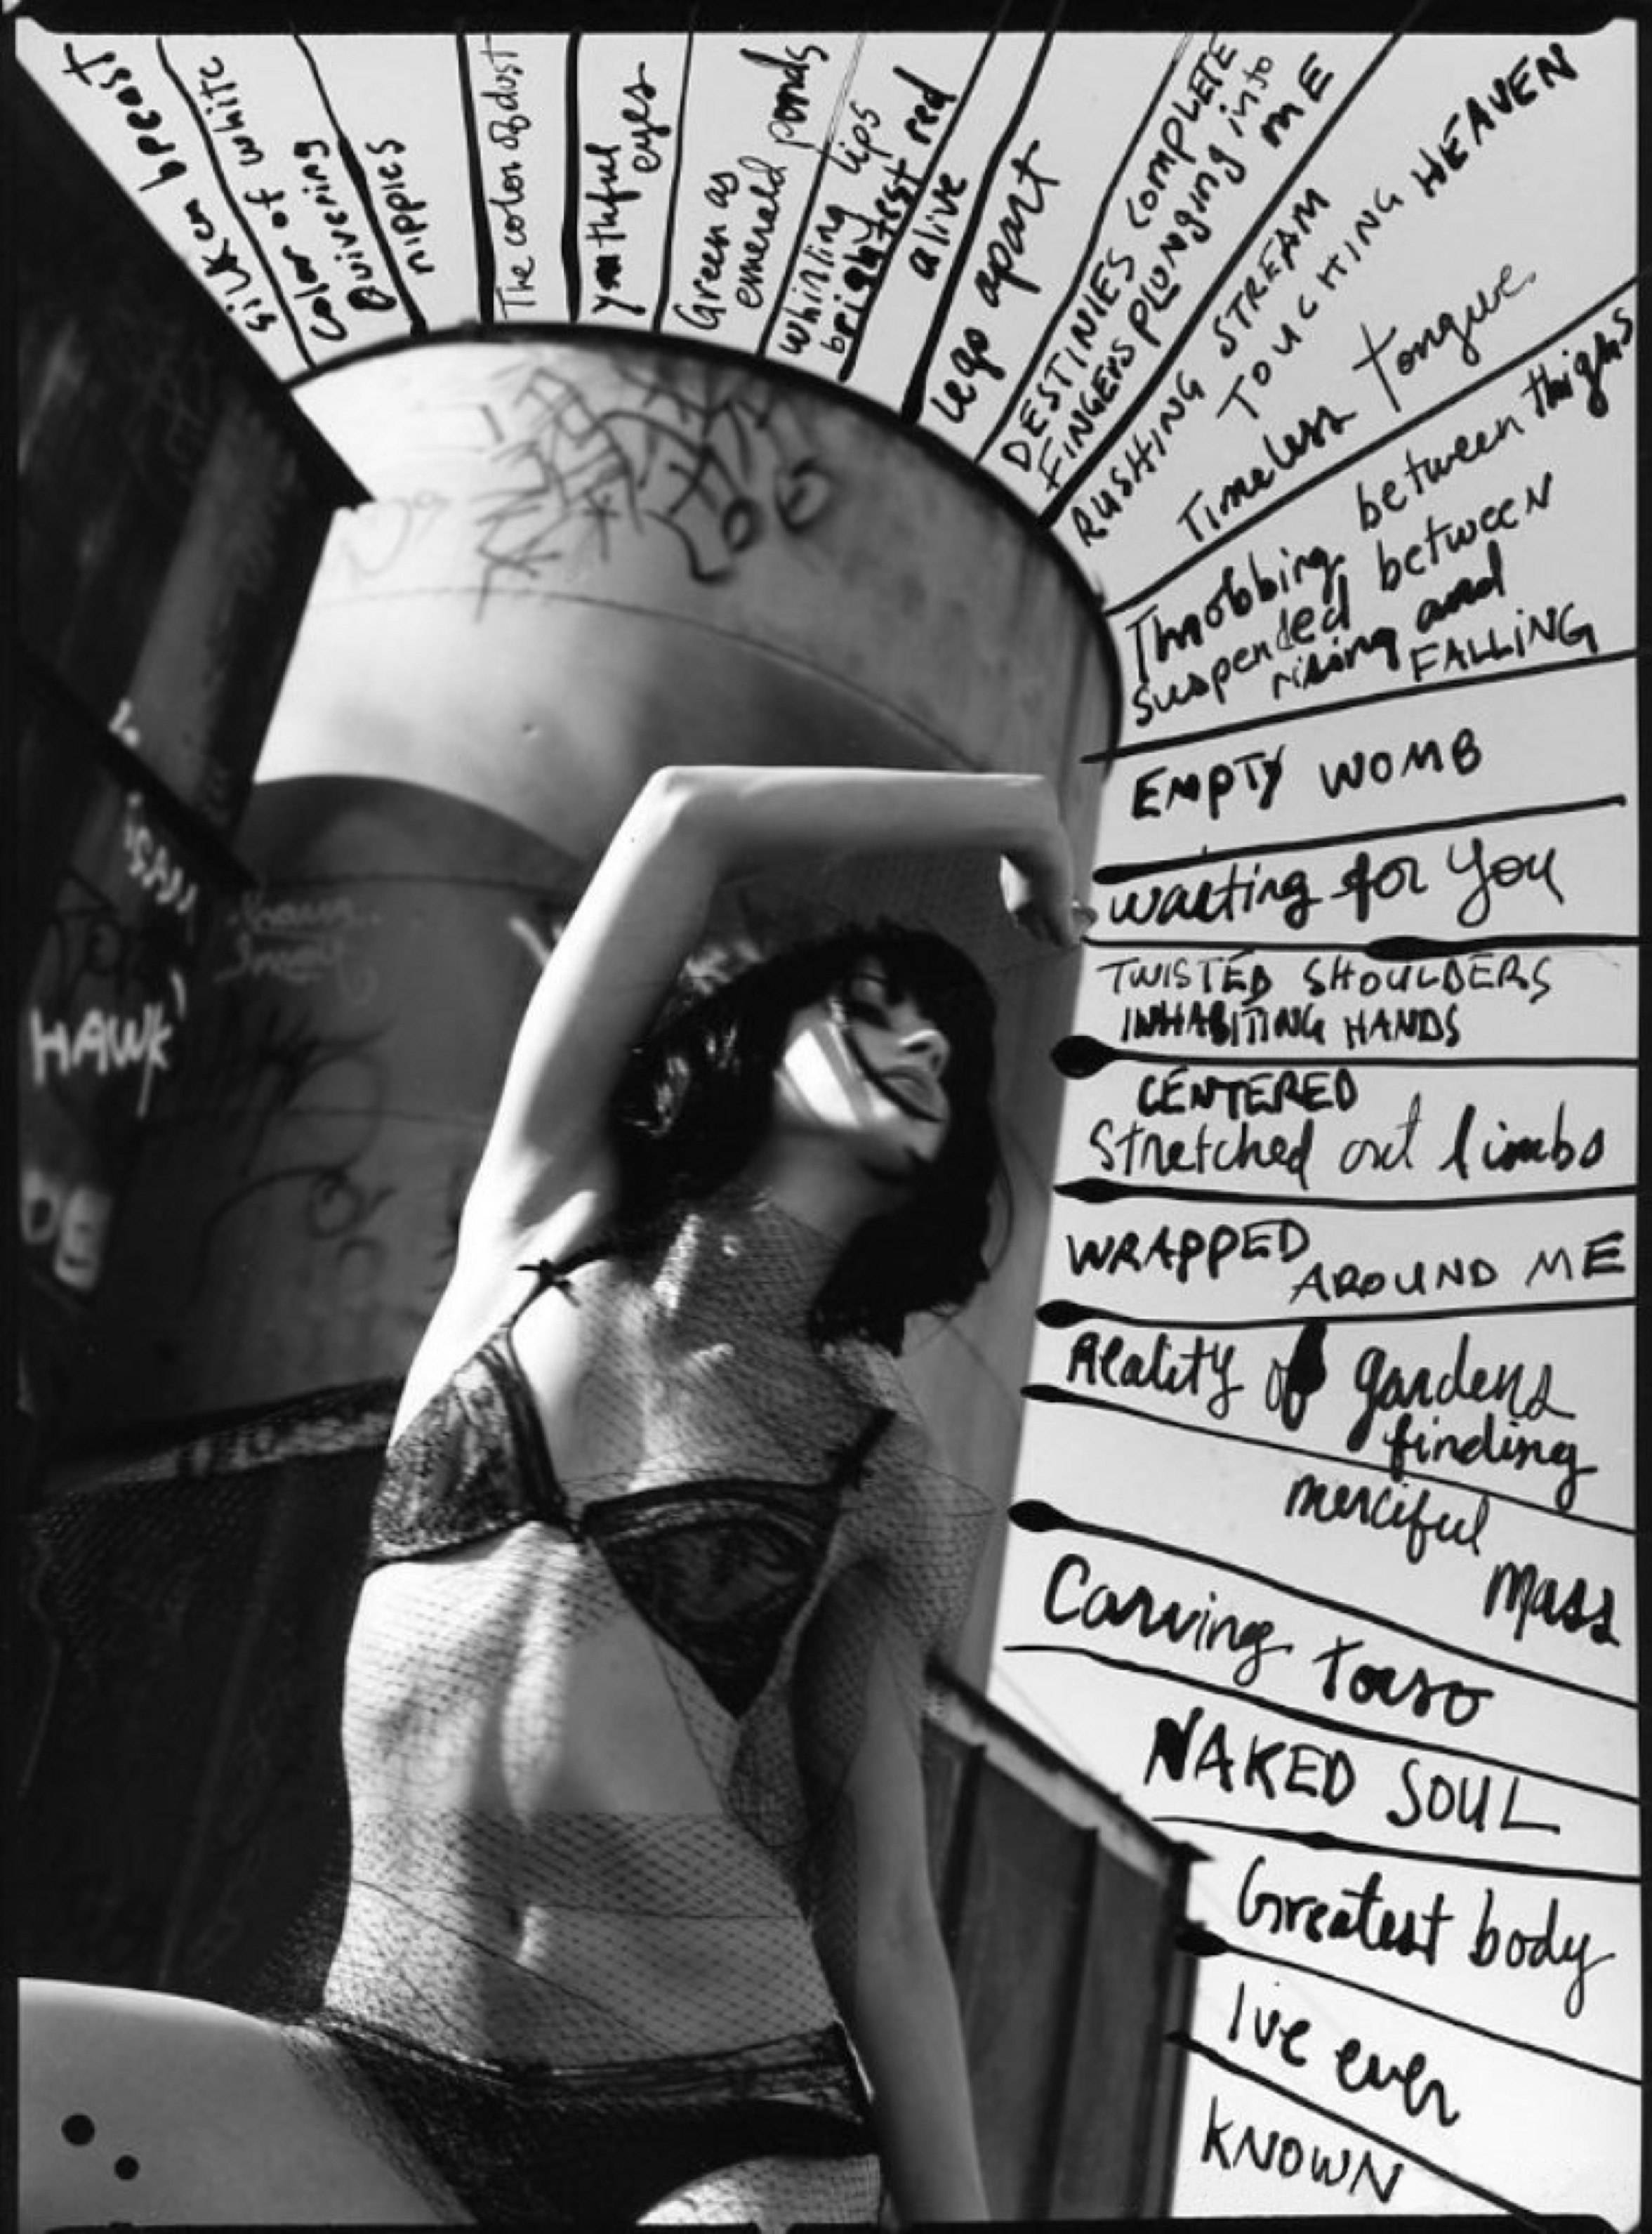 silken breast
color of white
Quivering
nipples
The color of dust
youthful
eyes
Green as
emerald ponds
whirling lips
brightest red
alive
legs apart
DESTINIES COMPLETE
FINGERS PLUNGING into
ME
RUSHING STREAM
TOUCHING HEAVEN
Timeless tongue
Throbbing between thighs
suspended between
rising and
FALLING
EMPTY WOMB
waiting for you
TWISTED SHOULDERS
INHABITING HANDS
CENTERED
Stretched out limbs
WRAPPED
AROUND ME
Reality of gardens
finding
merciful
mass
Carving torso
NAKED SOUL
Greatest body
I've ever
KNOWN
HAWK